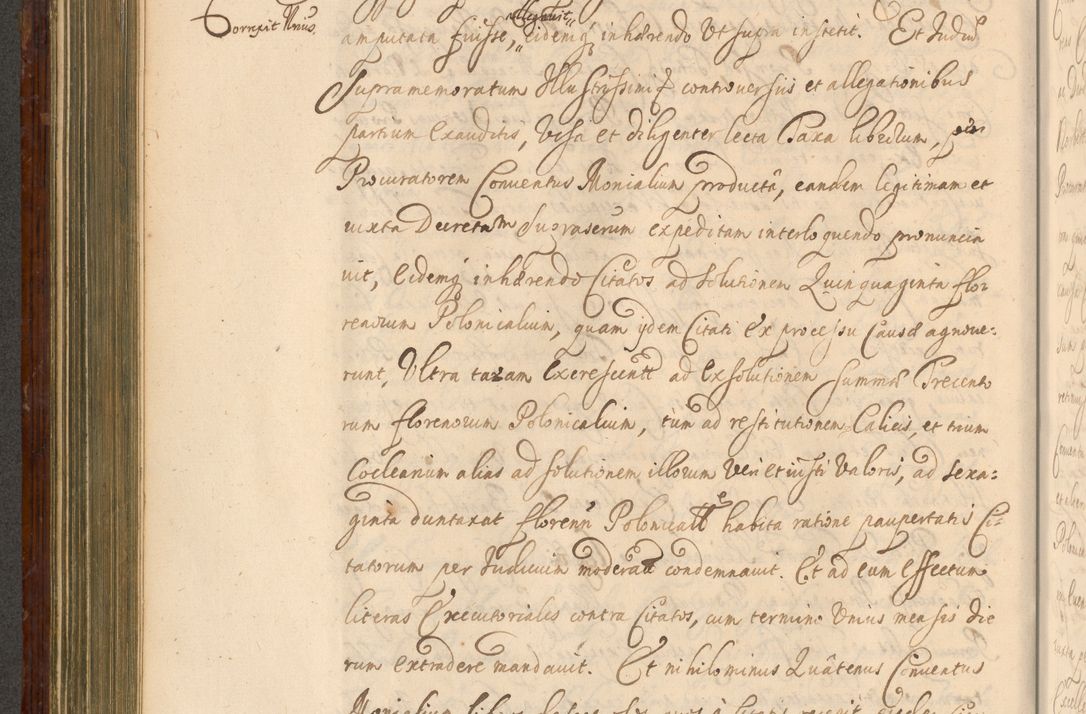 Correxit Unus
allegavit,
amputata fuisse, eidemq inhærendo Ut supra institit. Et Judiū
Supramemoratum Illustrissimū controversiis et allegationibus
partium exauditis, Visa et diligenter lecta Taxa librorum, per
Procuratorem Conventus Monialium productā, eandem legitimam et
iuxta Decretam Supraserum expeditam interloquendo pronuncia
vit, eidemq inhærendo Citatos ad solutionem Quinquaginta flo
renorum Polonicalium, quam ydem Citati Ex processu Causæ agnove-
runt, Ultra taxam Excrescentē ad Exsolutionem summæ Trecento
rum florenorum Polonicalium, tum ad restitutionem Calicis, et trium
Coclearium alias ad solutionem illorum Veri et iusti Valoris, ad sexa-
ginta duntaxat florenū Polonicalē habita ratione paupertatis Ci-
tatorum per Judicium moderatā condemnavit. Et ad eum Effectum
literas Executoriales contra Citatos, cum termino Unius mensis die
rum extradere mandavit. Et nihilominus Quâtenus Conventus